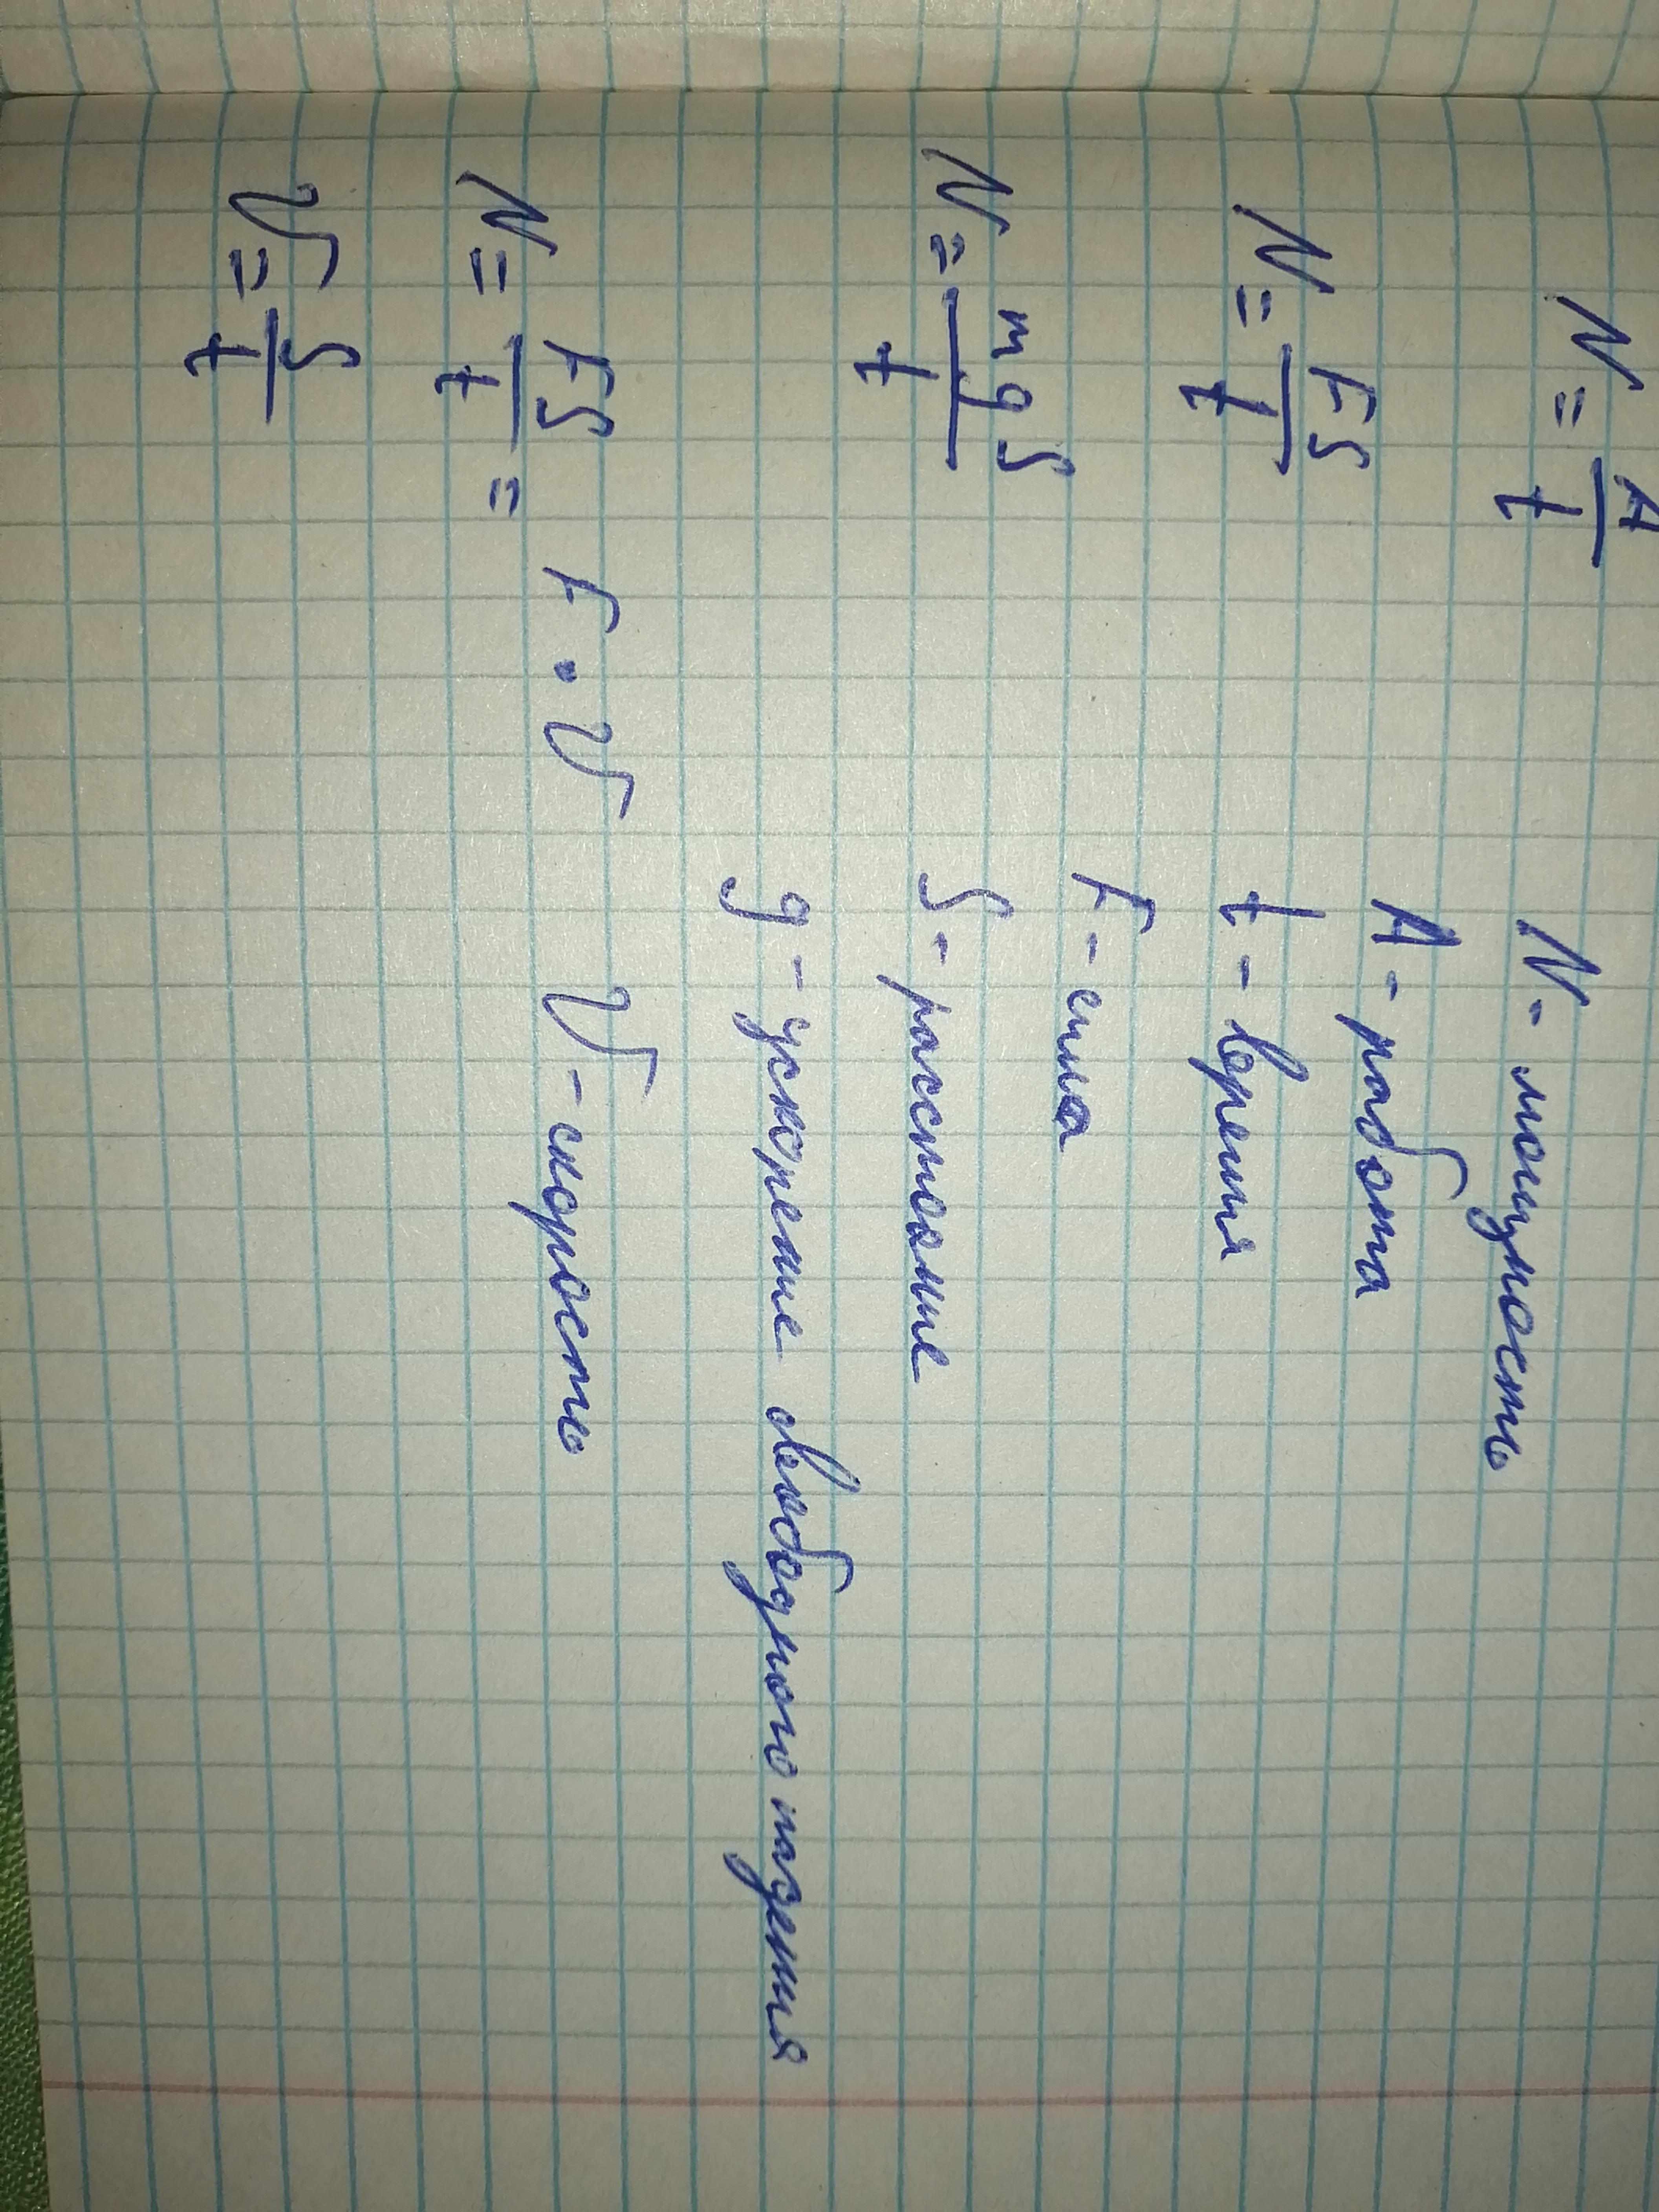 N = A/t
N - мощность
A - работа
N = FS/t
t - время
F - сила
N = mgS/t
S - расстояние
g - ускорение свободного падения
N = FS/t = F · V
V - скорость
V = S/t